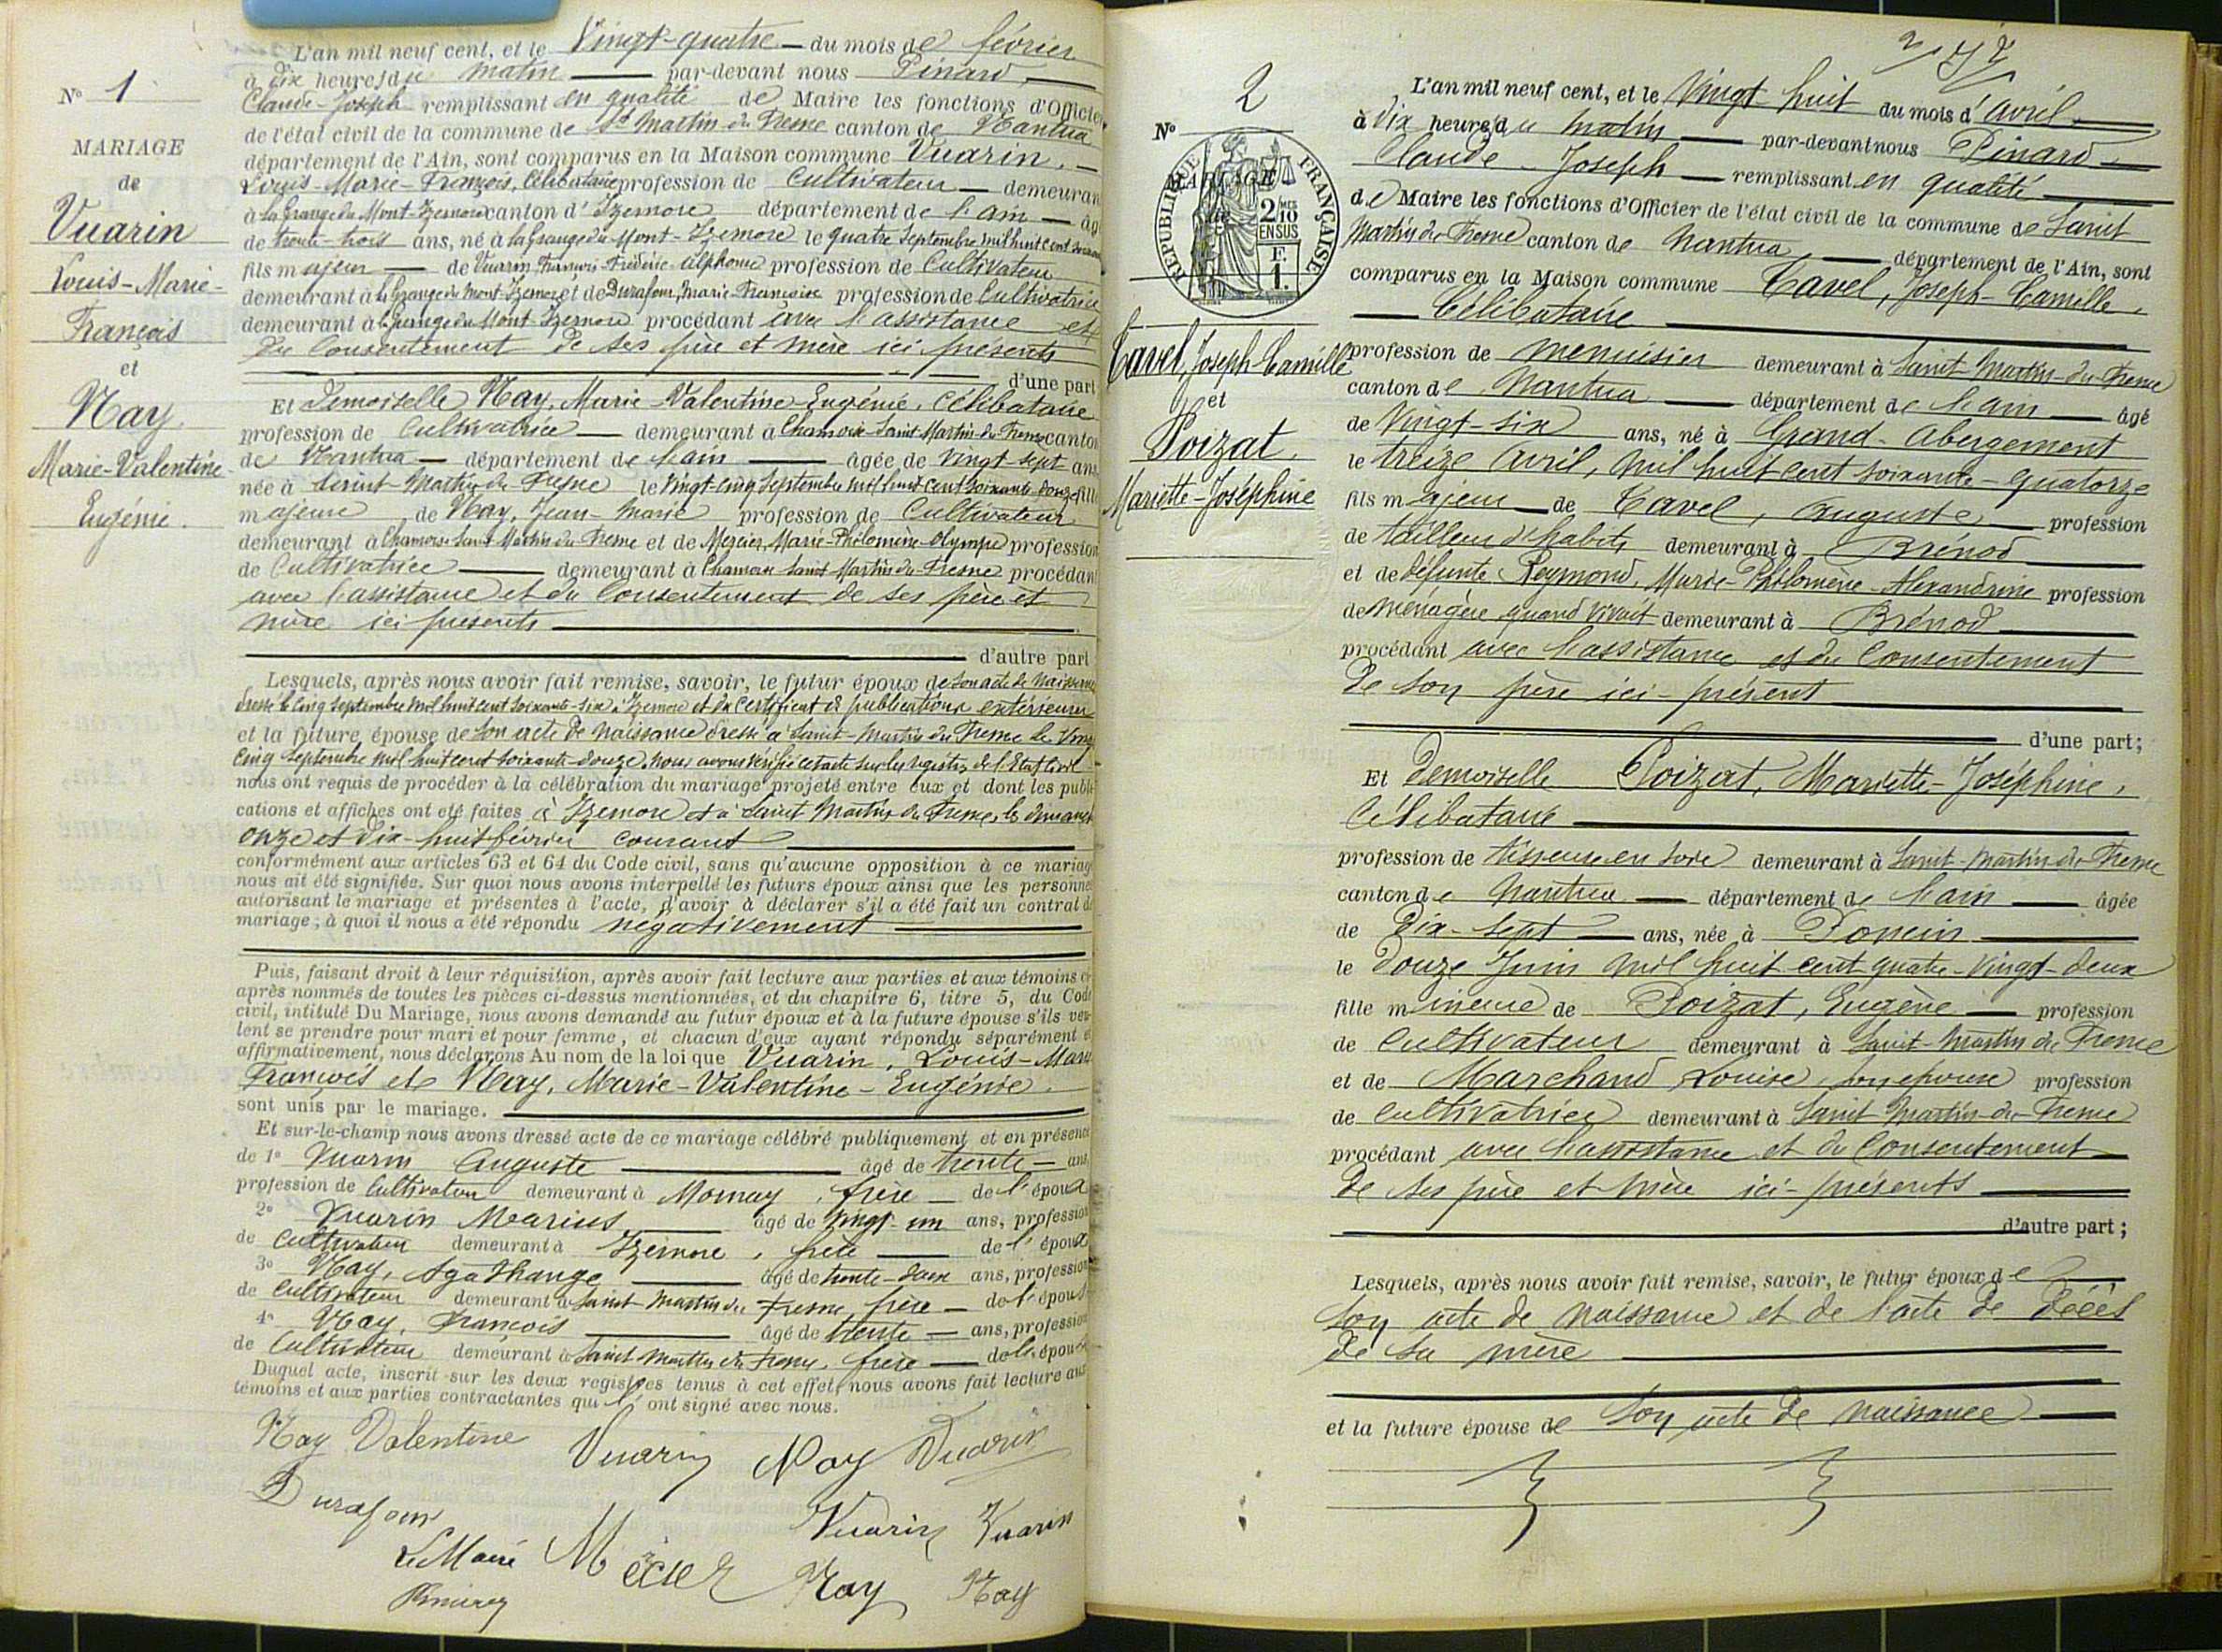 L'an mil neuf cent, et le Vingt-quatre du mois de février
à dix heures du matin par-devant nous Pinard
Claude-Joseph remplissant en qualité de Maire les fonctions d'Officier
de l'état civil de la commune de St Martin du Fresne canton de Nantua
département de l'Ain, sont comparus en la Maison commune Vuarin,
Louis-Marie-François, Célibataire profession de Cultivateur demeurant
à la Grange du Mont-Izernore canton d'Izernore département de l'ain âgé
de trente-trois ans, né à la Grange du Mont-Izernore le quatre Septembre mil huit cent
fils majeur de Vuarin, François-Frédéric-Alphonse profession de Cultivateur
demeurant à la Grange du Mont-Izernore et de Durafour, Marie-Françoise profession de Cultivatrice
demeurant à la Grange du Mont Izernore procédant avec l'assistance et
du Consentement de ses père et mère ici présents
d'une part
Et Demoiselle Nay, Marie-Valentine-Eugénie, Célibataire
profession de Cultivatrice demeurant à Chamoise Saint-Martin-du-Fresne canton
de Nantua département de l'ain âgée de vingt sept ans
née à Saint-Martin du Fresne le Vingt-cinq Septembre mil huit cent soixante-douze fille
majeure de Nay, Jean-Marie profession de Cultivateur
demeurant à Chamoise Saint Martin du Fresne et de Mercier, Marie-Philomène-Olympe profession
de Cultivatrice demeurant à Chamoise Saint Martin du Fresne procédant
avec l'assistance et du Consentement de ses père et
mère ici présents
d'autre part
Lesquels, après nous avoir fait remise, savoir, le futur époux de son acte de naissance
dressé le cinq Septembre mil huit cent soixante-six à Izernore et du Certificat de publications extérieures
et la future épouse de son acte de naissance dressé à Saint-Martin du Fresne le Vingt
cinq Septembre mil huit cent soixante-douze, nous avons vérifié cet acte sur les registres de l'Etat Civil
nous ont requis de procéder à la célébration du mariage projeté entre eux et dont les publi-
cations et affiches ont été faites à Izernore et à Saint Martin du Fresne, les dimanches
onze et dix-huit février courant
conformément aux articles 63 et 64 du Code civil, sans qu'aucune opposition à ce mariage
nous ait été signifiée. Sur quoi nous avons interpellé les futurs époux ainsi que les personnes
autorisant le mariage et présentes à l'acte, d'avoir à déclarer s'il a été fait un contrat de
mariage; à quoi il nous a été répondu négativement
Puis, faisant droit à leur réquisition, après avoir fait lecture aux parties et aux témoins ci-
après nommés de toutes les pièces ci-dessus mentionnées, et du chapitre 6, titre 5, du Code
civil, intitulé Du Mariage, nous avons demandé au futur époux et à la future épouse s'ils veu-
lent se prendre pour mari et pour femme, et chacun d'eux ayant répondu séparément et
affirmativement, nous déclarons Au nom de la loi que Vuarin, Louis-Marie
François et Nay, Marie-Valentine-Eugénie.
sont unis par le mariage.
Et sur-le-champ nous avons dressé acte de ce mariage célébré publiquement et en présence
de 1° Vuarin Auguste âgé de trente ans
profession de Cultivateur demeurant à Mornay, frère de l'époux
2° Vuarin Marius âgé de vingt-un ans, profession
de Cultivateur demeurant à Izernore, frère de l'époux
3° Nay, Agathange âgé de trente-deux ans, profession
de Cultivateur demeurant à Saint Martin du Fresne, frère de l'épouse
4° Nay, François âgé de trente ans, profession
de Cultivateur demeurant à Saint Martin du Fresne, frère de l'épouse
Duquel acte, inscrit sur les deux registres tenus à cet effet, nous avons fait lecture aux
témoins et aux parties contractantes qui l'ont signé avec nous.
Nay Valentine Vuarin Nay Vuarin
Durafour
Le Maire Mécier Vuarin Vuarin
Nay Nay
N° 1
MARIAGE
de
Vuarin
Louis-Marie-
François
et
Nay
Marie-Valentine-
Eugénie.
N° 2
RÉPUBLIQUE FRANÇAISE
MARIAGE
de
2/10 EN SUS
F. 1.
Cavel, Joseph-Camille
et
Poizat,
Mariette-Joséphine
L'an mil neuf cent, et le Vingt huit du mois d'avril
à dix heures du matin par-devant nous Pinard
Claude-Joseph remplissant en qualité
de Maire les fonctions d'Officier de l'état civil de la commune de Saint
Martin du Fresne canton de Nantua, département de l'Ain, sont
comparus en la Maison commune Cavel, Joseph-Camille,
Célibataire
profession de menuisier demeurant à Saint Martin-du-Fresne
canton de Nantua département de l'ain âgé
de Vingt-six ans, né à Grand-Abergement
le treize avril, mil huit cent soixante-quatorze
fils majeur de Cavel, Auguste profession
de tailleur d'habits demeurant à Brénod
et de défunte Reymond, Marie-Philomène-Alexandrine profession
de ménagère quand vivait demeurant à Brénod
procédant avec l'assistance et du Consentement
de son père ici-présent
d'une part;
Et Demoiselle Poizat, Mariette-Joséphine,
Célibataire
profession de tisseuse en soie demeurant à Saint-Martin du Fresne
canton de Nantua département de l'ain âgée
de Dix-sept ans, née à Poncin
le Douze Juin mil huit cent quatre-vingt-deux
fille mineure de Poizat, Eugène profession
de Cultivateur demeurant à Saint-Martin du Fresne
et de Marchand Louise, son épouse profession
de cultivatrice demeurant à Saint Martin-du-Fresne
procédant avec l'assistance et du Consentement
de ses père et mère ici-présents
d'autre part;
Lesquels, après nous avoir fait remise, savoir, le futur époux de
son acte de naissance et de l'acte de décès
de sa mère
et la future épouse de son acte de naissance